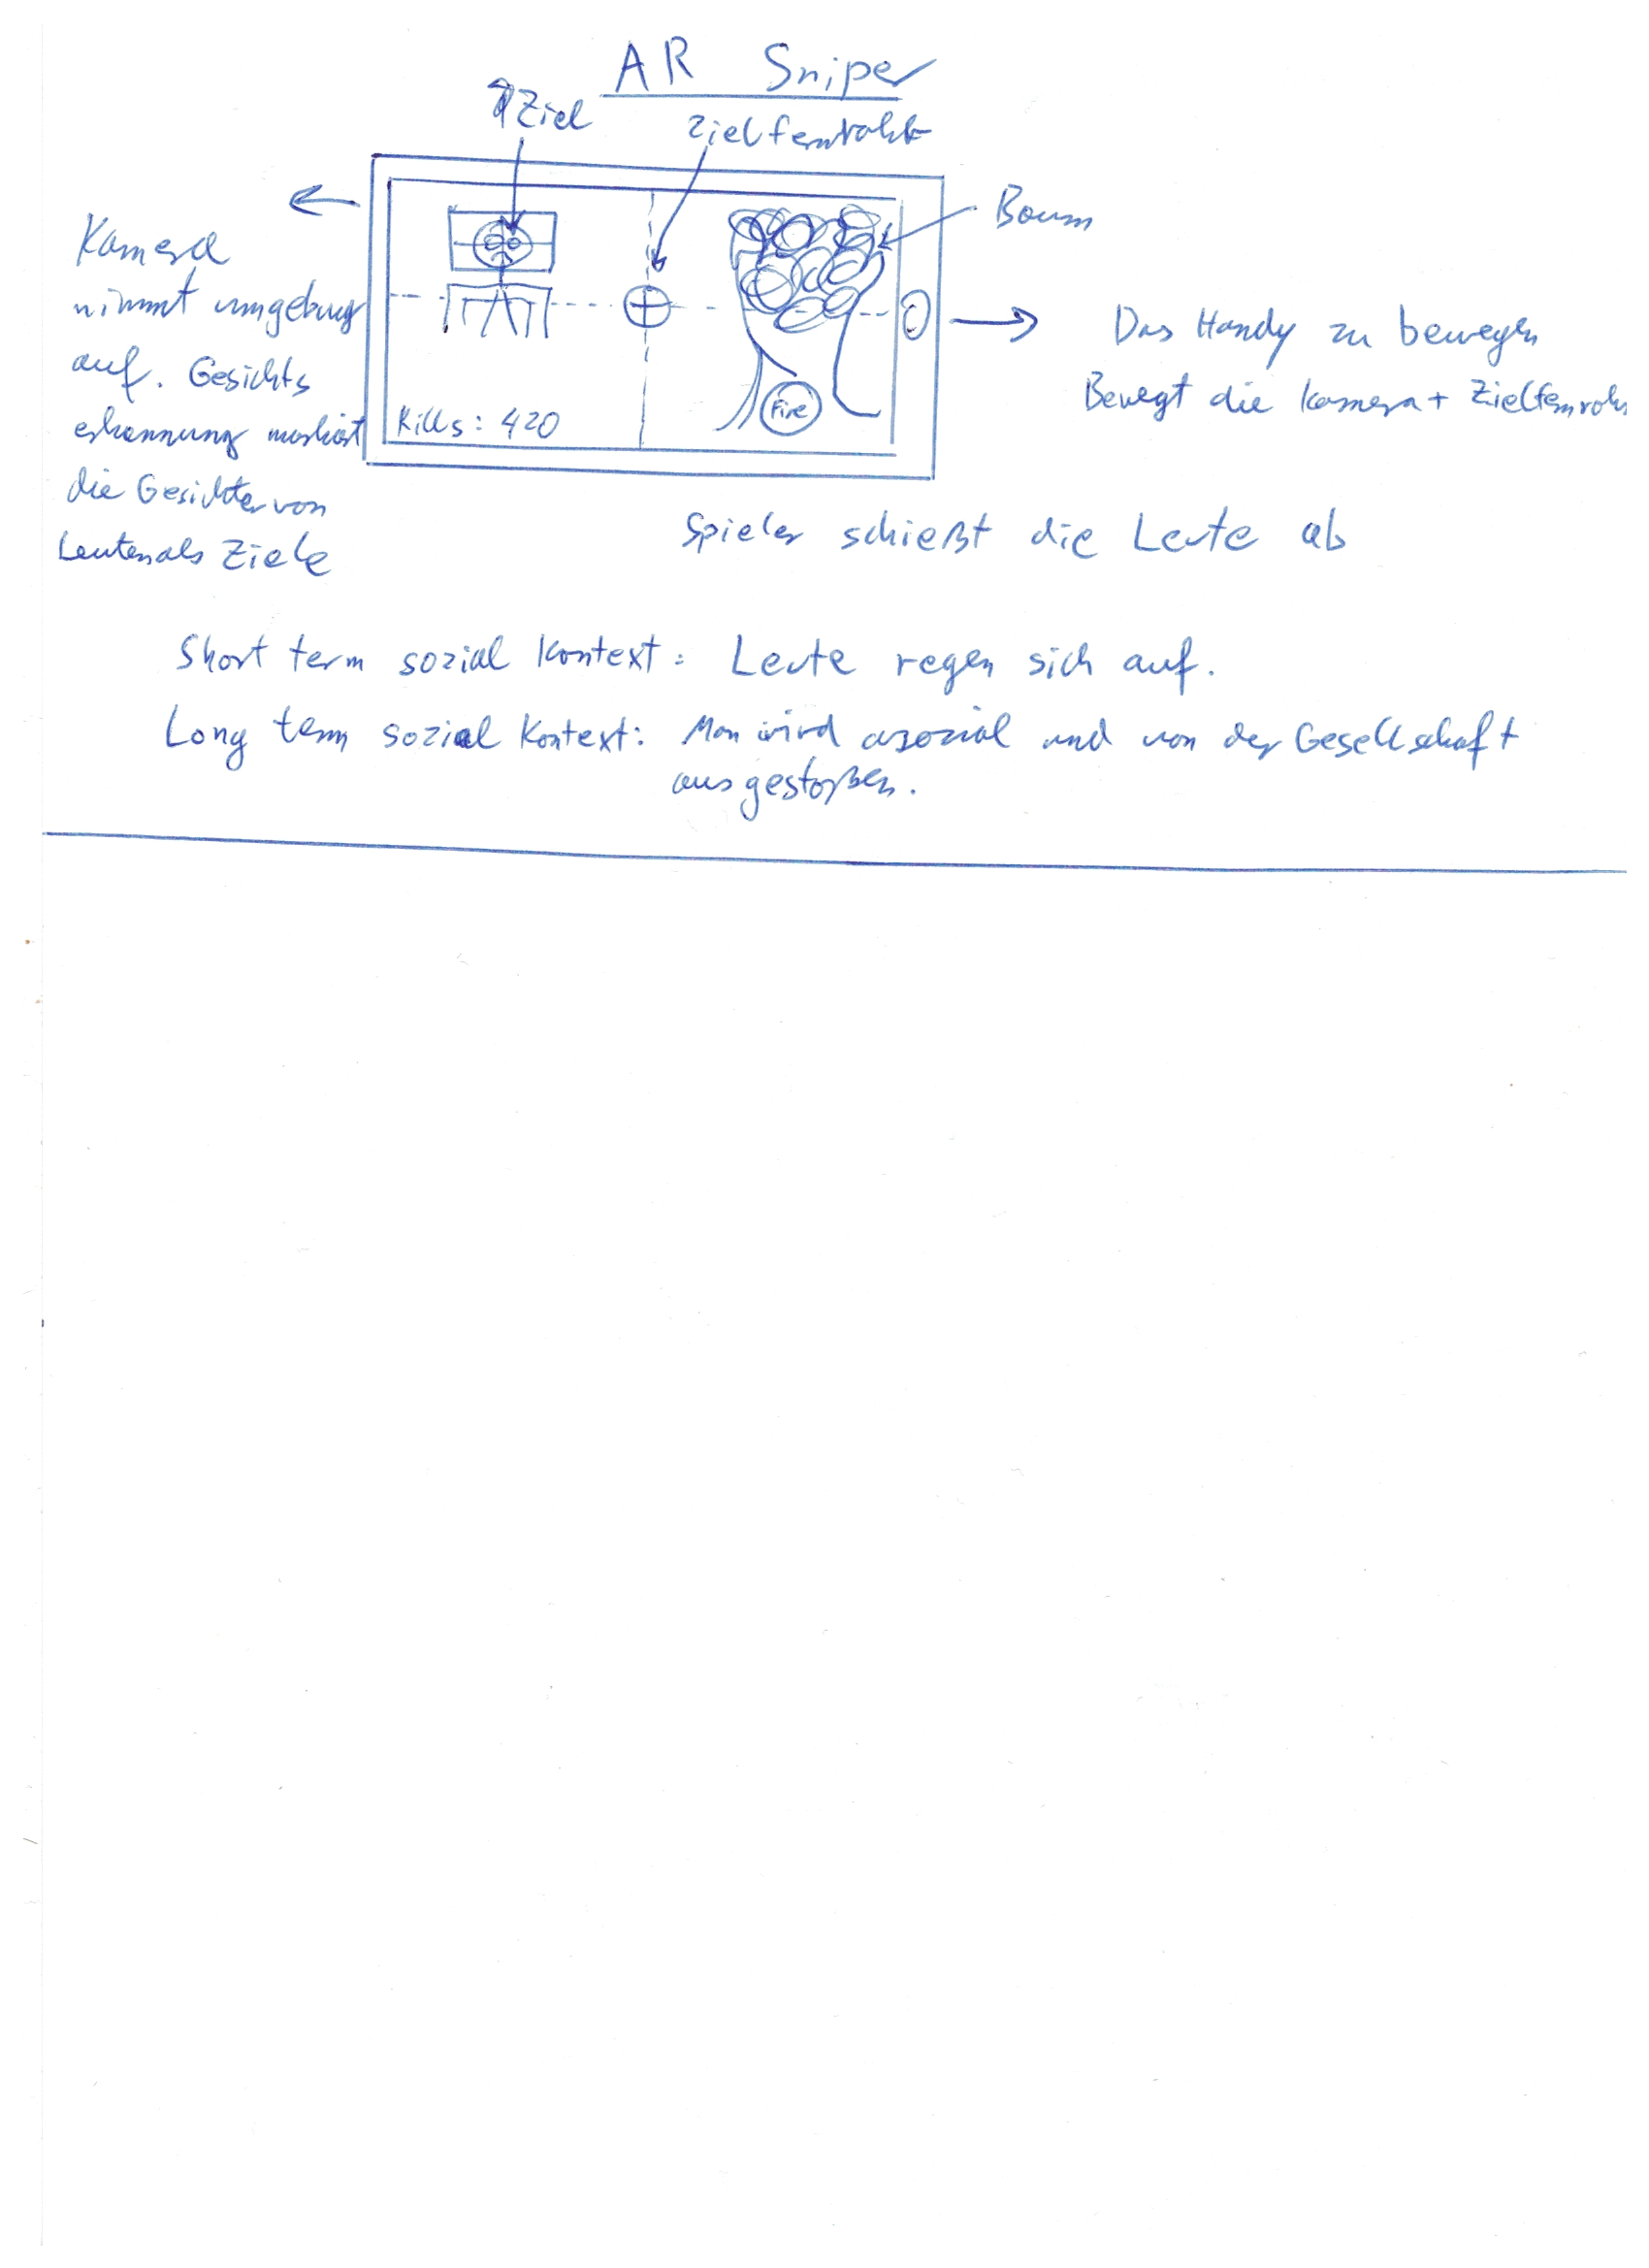 AR Sniper
Ziel
Zielfernrohr
Baum
Kamera
nimmt umgebung
auf. Gesichts
erkennung markiert
die Gesichter von
Leuten als Ziele
Kills: 420
Fire
Das Handy zu bewegen
Bewegt die Kamera + Zielfernrohr
Spieler schießt die Leute ab
Short term sozial Kontext: Leute regen sich auf.
Long term sozial Kontext: Man wird asozial und von der Gesellschaft
ausgestoßen.